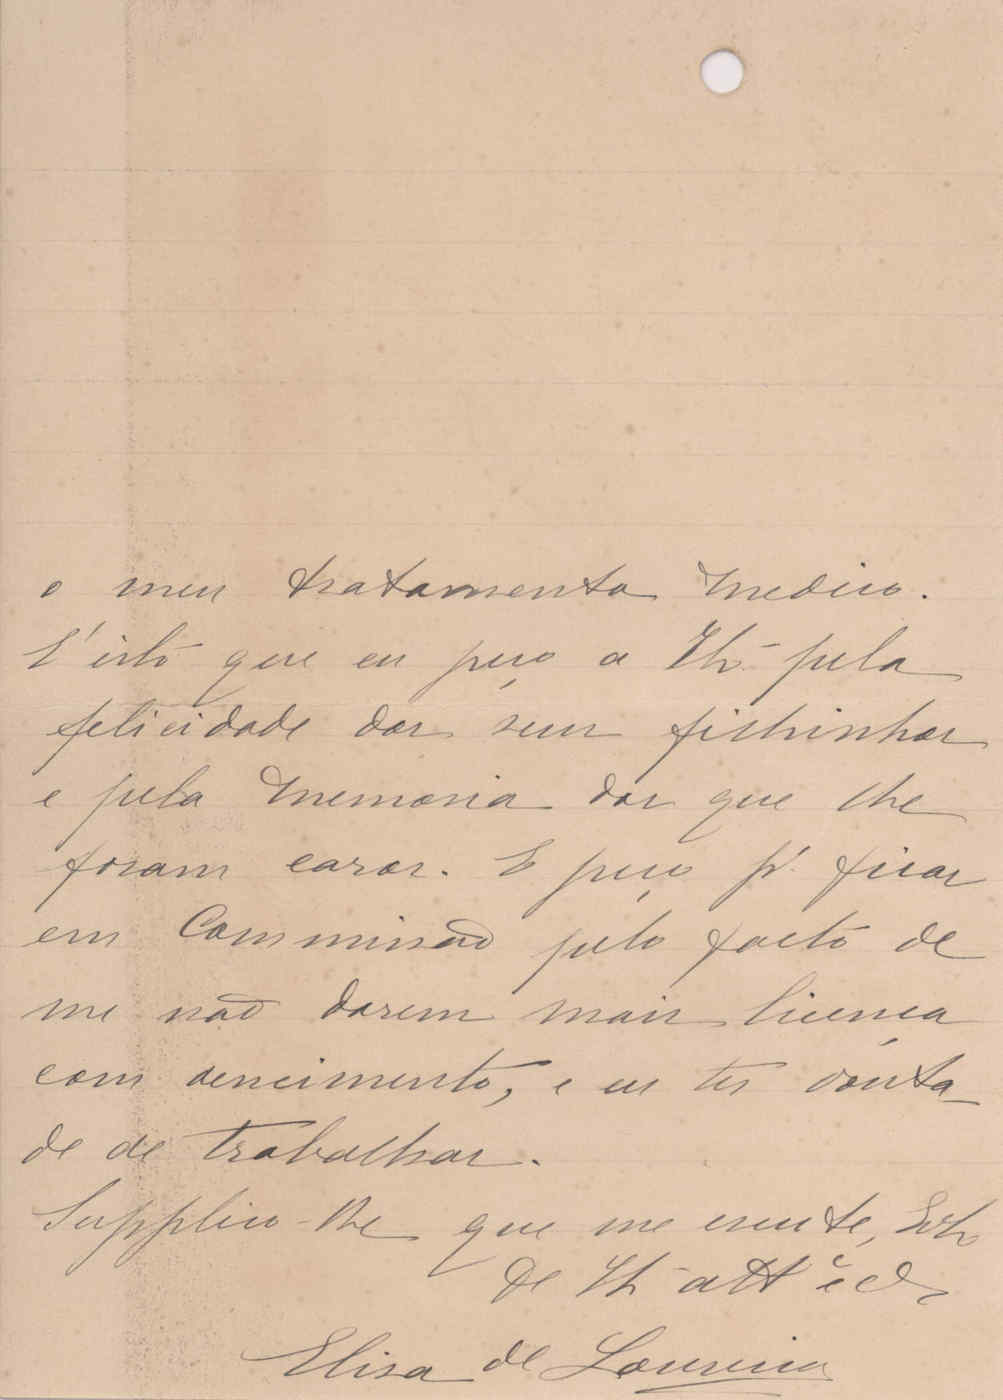 o meu tratamento medico.
E' isto que eu peço a pela
felicidade dos seus filhinhos
e pela memoria dos que lhe
foram caros. E peço p.ª ficar
em Commissão pelo facto de
me não darem mais licença
com vencimento, e eu ter vonta-
de de trabalhar.
Supplico-lhe que me escute,
De att.
Elisa de